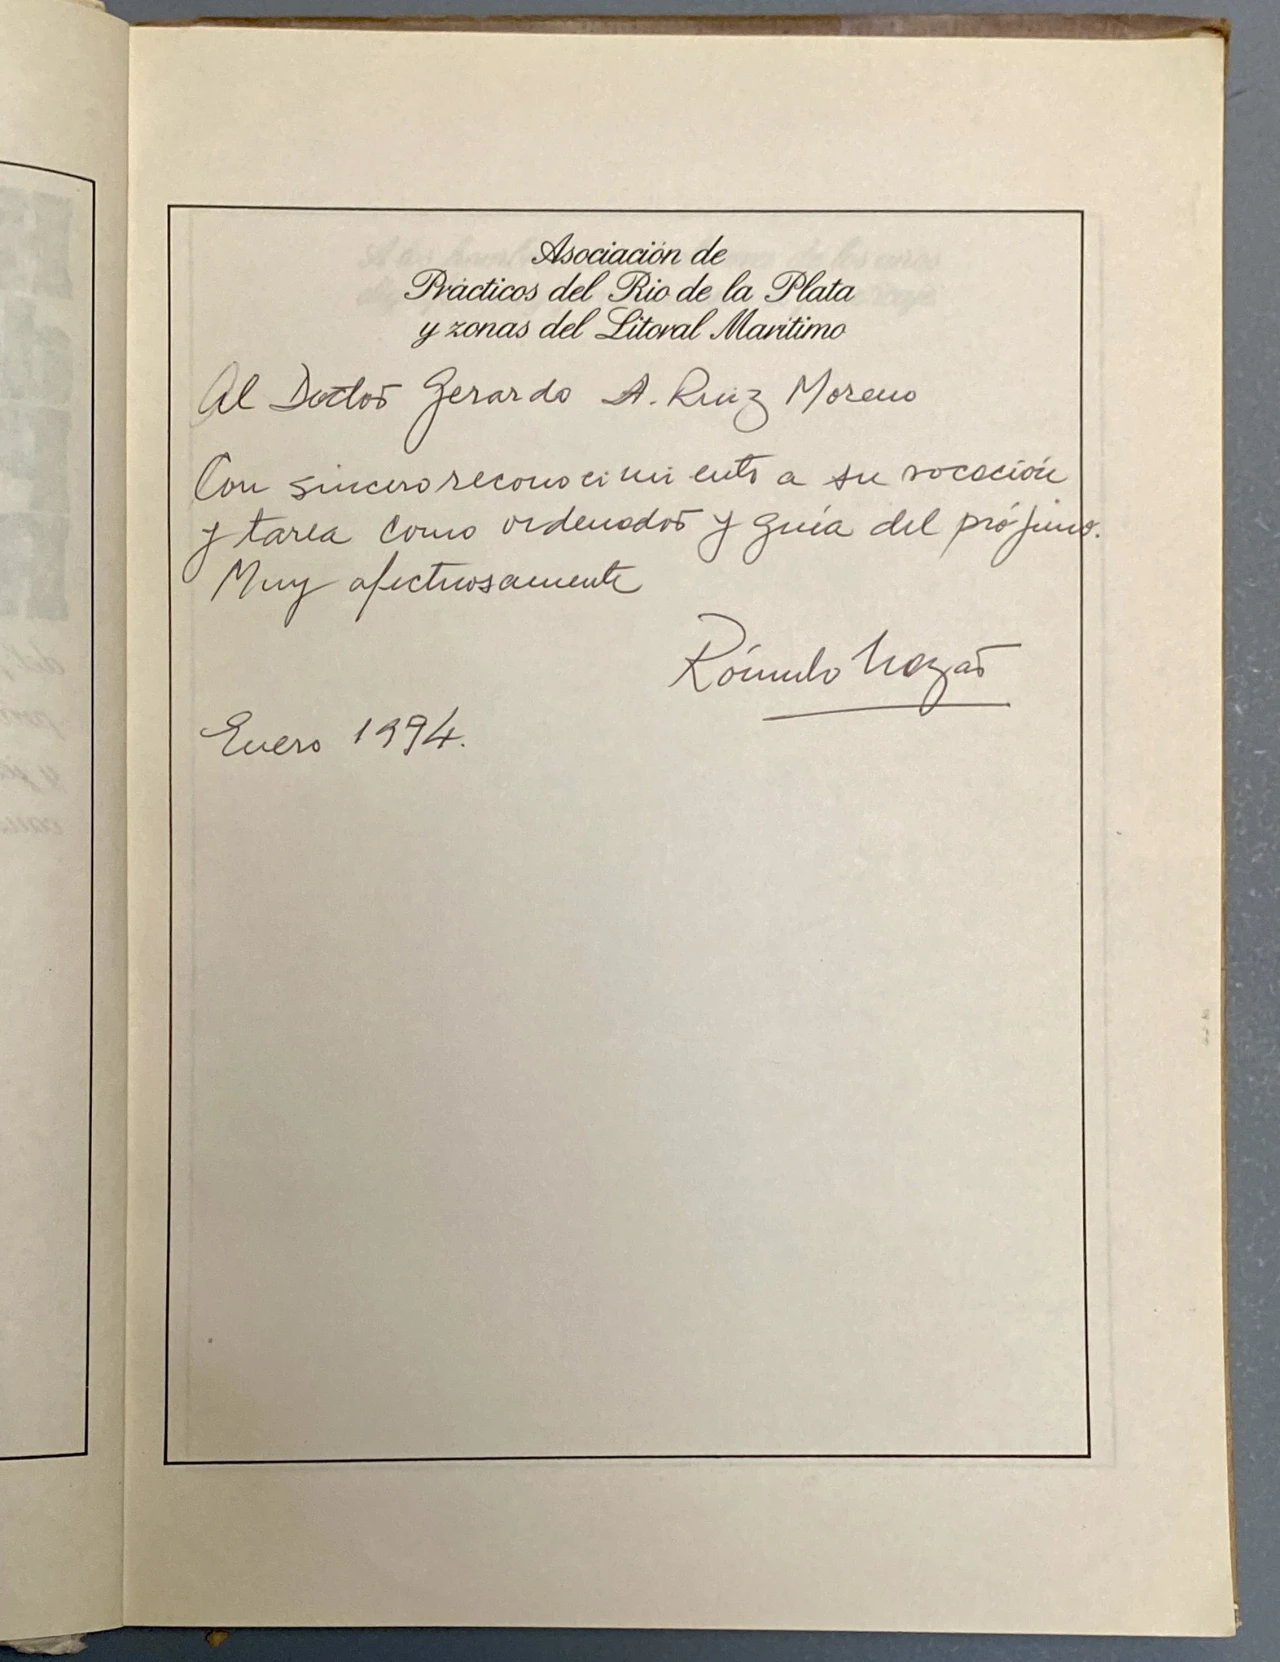 Asociación de
Prácticos del Río de la Plata
y zonas del Litoral Marítimo
Al Doctor Gerardo A. Ruiz Moreno
Con sincero reconocimiento a su vocación
y tarea como ordenador y guía del prójimo.
Muy afectuosamente
Rómulo
Enero 1994.